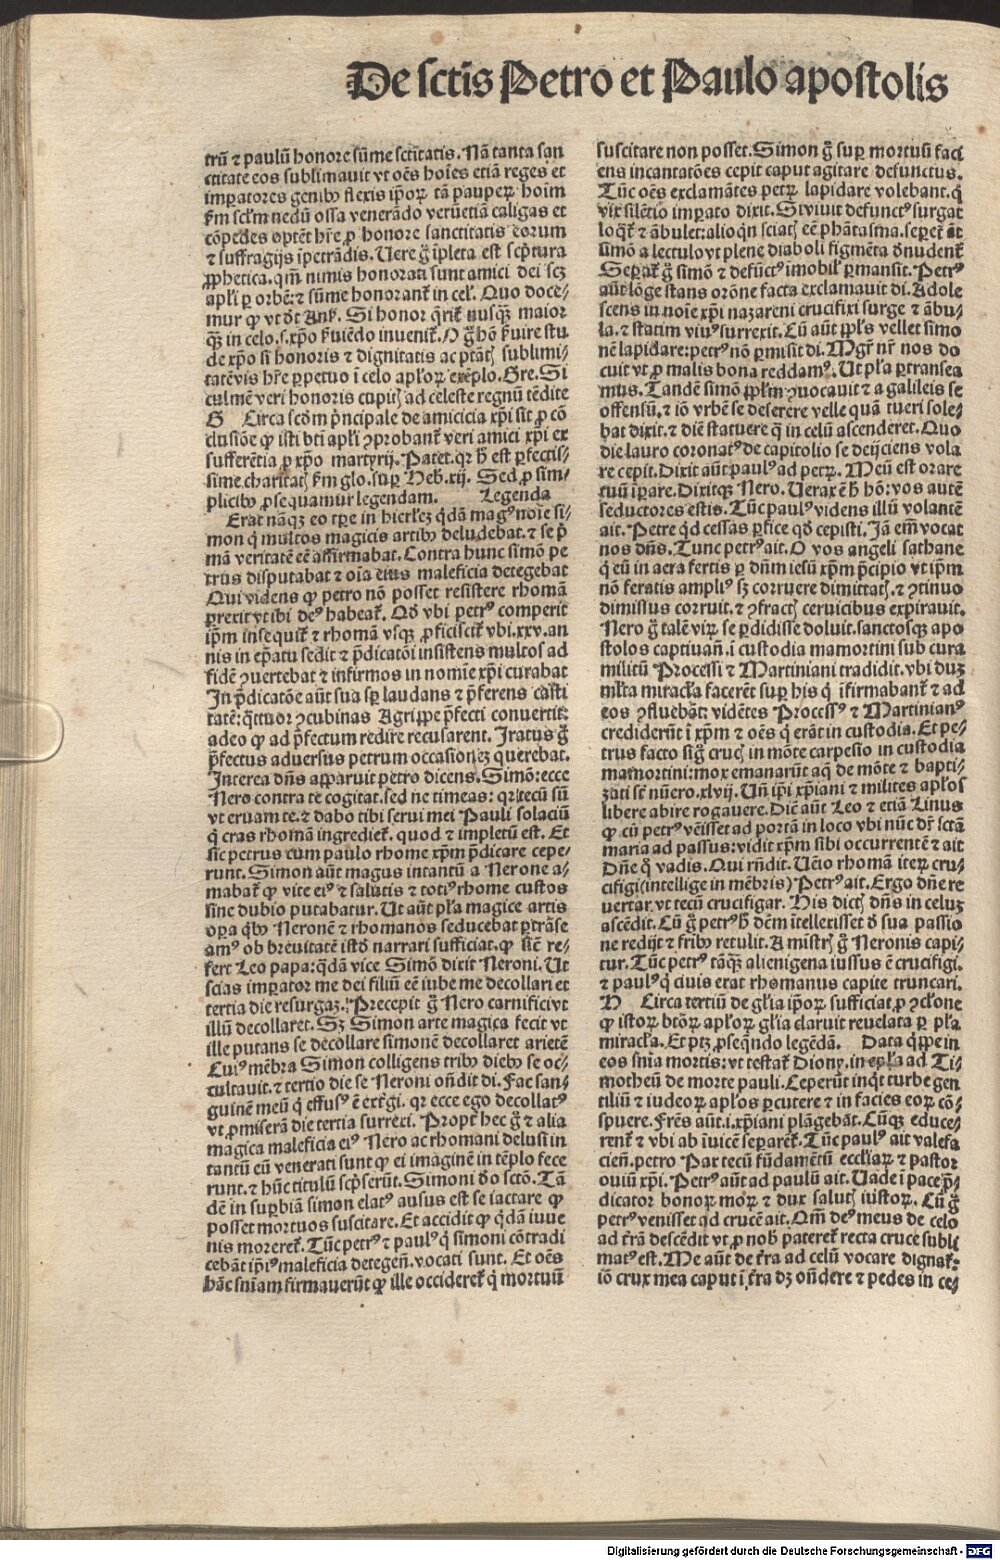 De sctis Petro et Paulo apostolis
trū ⁊ paulū honore sūme sctītatis. Nā tanta san
ctitate eos sublimauit vt oēs hoīes etiā reges et
impatores genibꝰ flexis ipoꝝ tā paupeꝝ hoim
ẜm sclm nedū ossa venerādo veruetiā caligas et
cōpedes optēt hr̄e ꝓ honore sanctitatis eorum
⁊ suffragijs īpetrādis. Uere gͦ īpleta est scptura
ꝓphetica. qm̄ nimis honorati sunt amici dei scꝫ
apłi ꝑ orbē: ⁊ sūme honorant̄ in cel̄. Quo doce⸗
mur ꝙ vt dt Ans. Si honor qrit̄ nusqꝫ maior
qꝫ in celo. s. xp̄o ẜuiēdo inuenit̄. O ghō ẜuire stu
de xp̄o si honoris ⁊ dignitatis ac ptāt sublimi⸗
tatēvis hr̄e ꝑpetuo ī celo apłoꝝ exēplo. Gre. Si
culmē veri honoris cupit ad celeste regnū tēdite
G Circa scdm pͥncipale de amicicia xp̄i sit ꝓ cō
clusiōe ꝙ isti bti apłi ꝯprobant̄ veri amici xp̄i ex
sufferētia ꝑ xp̄o martyrij. Patet. qꝛ h est ꝑfectis⸗
sime charitat ẜm glo. suꝑ Heb. xij. Sed ꝓ sim⸗
plicibꝰ ꝓsequamur legendam. Legenda
Erat nāqꝫ eo tꝑe in hierłeꝫ qdā magꝰ noīe si⸗
mon q multos magicis artibꝰ deludebat. ⁊ se p̄
mā veritatē eē affirmabat. Contra hunc simō pe
trus disputabat ⁊ oīa eius maleficia detegebat
Qui videns ꝙ petro nō posset resistere rhomā
ꝑrexit vt ibi deꝰ habeat̄. Qd vbi petrꝰ comperit
ipm insequit̄ ⁊ rhomā vsqꝫ ꝓficiscit̄ vbi. xxv. an
nis in epatu sedit ⁊ p̄dicatōi insistens multos ad
fidē ꝯuertebat ⁊ infirmos in nomīe xp̄i curabat
In p̄dicatōe aūt sua sp laudans ⁊ p̄ferens casti
tatē: qttuor ꝯcubinas Agrippe p̄fecti conuertit:
adeo ꝙ ad p̄fectum redire recusarent. Iratus gͦ
p̄fectus aduersus petrum occasioneꝫ querebat.
Interea dn̄s apparuit petro dicens. Simō: ecce
Nero contra te cogitat. sed ne timeas: qꝛ tecū sū
vt eruam te. ⁊ dabo tibi serui mei Pauli solaciū
q cras rhomā ingrediet̄. quod ⁊ impletū est. Et
sic petrus cum paulo rhome xpm p̄dicare cepe⸗
runt. Simon aūt magus intantū a Nerone a⸗
mabat̄ ꝙ vite eiꝰ ⁊ salutis ⁊ totiꝰ rhome custos
sine dubio putabatur. Ut aūt pla magice artis
oꝑa qbꝰ Neronē ⁊ rhomanos seducebat ptrāse
amꝰ ob breuitatē istd narrari sufficiat. ꝙ sicut re⸗
fert Leo papa: qdā vice Simō dixit Neroni. Ut
scias impator me dei filiū eē iube me decollari et
tertia die resurgaꝫ. Precepit gͦ Nero carnifici vt
illū decollaret. Sꝫ Simon arte magica fecit vt
ille putans se decollare simonē decollaret arietē
Cuiꝰ mēbra Simon colligens tribꝰ diebꝰ se oc⸗
cultauit. ⁊ tertio die se Neroni on̄dit di. Fac san⸗
guinē meū q effusꝰ ē extgi. qꝛ ecce ego decollatꝰ
vt ꝓmiserā die tertia surrexi. Propt̄ hec gͦ ⁊ alia
magica maleficia eiꝰ Nero ac rhomani delusi in
tantū eū venerati sunt ꝙ ei imaginē in tēplo fece
runt. ⁊ hūc titulū scpserūt. Simoni dͦo sctō. Tā
dē in supbiā simon elatꝰ ausus est se iactare ꝙ
posset mortuos suscitare. Et accidit ꝙ qdā iuue
nis moreret̄. Tūc petrꝰ ⁊ paulꝰ q simoni cōtradi
cebāt ipiꝰ maleficia detegen̄. vocati sunt. Et oēs
hāc sniam firmauerūt ꝙ ille occideret̄ q mortuū
suscitare non posset. Simon gͦ suꝑ mortuū faci
ens incantatōes cepit caput agitare defunctus.
Tūc oēs exclamātes petꝝ lapidare volebant. q
vix silētio imꝑato dixit. Si viuit defunctꝰ surgat
loqt̄ ⁊ ābulet: alioqn sciat eē phātasma. sepet̄ āt
simō a lectulo vt plene diaboli figmēta dͤnudent̄
Separat̄ gͦ simō ⁊ defunctꝰ imobil ꝑmansit. Petrꝰ
aūt lōge stans orōne facta exclamauit di. Adole
scens in noīe xp̄i nazareni crucifixi surge ⁊ ābu⸗
la. ⁊ statim viuꝰ surrexit. Cū aūt ppls vellet simo
nē lapidare: petrꝰ nō ꝑmisit di. Mgr̄ nr̄ nos do
cuit vt ꝓ malis bona reddamꝰ. Ut pla ptransea
mus. Tandē simō pplm ꝯuocauit ⁊ a galileis se
offensū. ⁊ iō vrbē se deserere velle quā tueri sole⸗
bat dixit. ⁊ diē statuere q in celū ascenderet. Quo
die lauro coronatꝰ de capitolio se deijciens vola
re cepit. Dixit aūt paulꝰ ad petꝝ. Meū est orare
tuū īpare. Dixitqꝫ Nero. Uerax ē h hō: vos autē
seductores estis. Tūc paulꝰ videns illū volantē
ait. Petre qd cessas ꝑfice qd cepisti. Iā em̄ vocat
nos dn̄s. Tunc petrꝰ ait. O vos angeli sathane
q eū in aera fertis ꝑ dn̄m iesū xp̄m p̄cipio vt ipm
nō feratis ampliꝰ sꝫ corruere dimittat. ⁊ ꝯtinuo
dimissus corruit. ⁊ ꝯfract ceruicibus expirauit.
Nero gͦ talē viꝝ se ꝑdidisse doluit. sanctosqꝫ apo
stolos captiuan̄. ī custodia mamortini sub cura
militū Processi ⁊ Martiniani tradidit. vbi duꝫ
mlta miracła facerēt suꝑ his q īfirmabant̄ ⁊ ad
eos ꝯfluebāt: vidētes Processꝰ ⁊ Martinianꝰ
crediderūt ī xp̄m ⁊ oēs q erāt in custodia. Et pe⸗
trus facto sig cruc̄ in mōte carpesio in custodia
mamortini: mox emanarūt aq de mōte ⁊ bapti⸗
zati st̄ nūero. xlvij. Un̄ ipi xp̄iani ⁊ milites apłos
libere abire rogauere. Diē aūt Leo ⁊ etiā Linus
ꝙ cū petrꝰ vēisset ad portā in loco vbi nūc dr̄ sctā
maria ad passus: vidit xp̄m sibi occurrentē ⁊ ait
Dn̄e qͦ vadis. Qui rn̄dit. Uēio rhomā iteꝝ cru⸗
cifigi (intellige in mēbris) Petrꝰ ait. Ergo dn̄e re
uertar. vt tecū crucifigar. His dict dn̄s in celuꝫ
ascēdit. Cū gͦ petrꝰ h dēm ītellexisset dͤ sua passio
ne redijt ⁊ fribꝰ retulit. A mistr̄ gͦ Neronis capi⸗
tur. Tūc petrꝰ tāqꝫ alienigena iussus ē crucifigi.
⁊ paulꝰ q ciuis erat rhomanus capite truncari.
H Circa tertiū de glia ipoꝝ sufficiat. ꝓ ꝯclone
ꝙ istoꝝ btōꝝ apłoꝝ glia claruit reuelata ꝑ pla
miracła. Et ptꝫ ꝓseqndo legēdā. Data qppe in
eos snia mortis: vt testat̄ Diony. in epła ad Ti⸗
motheū de morte pauli. Ceperūt inqt turbe gen
tiliū ⁊ iudeoꝝ apłos ꝑcutere ⁊ in facies eoꝝ cō⸗
spuere. Frēs aūt. i. xp̄iani plāgebāt. Cūqꝫ educe⸗
rent̄ ⁊ vbi ab īuicē separēt̄. Tūc paulꝰ ait valefa
cien̄. petro Pax tecū fūdamētū ecclīaꝝ ⁊ pastor
ouiū xp̄i. Petrꝰ aūt ad paulū ait. Uade ī pace p̄⸗
dicator bonoꝝ moꝝ ⁊ dux salut iustoꝝ. Cū gͦ
petrꝰ venisset ad crucē ait. Qm̄ deꝰ meus de celo
ad t̄rā descēdit vt ꝓ nob pateret̄ recta cruce subli
matꝰ est. Me aūt de t̄ra ad celū vocare dignat̄:
iō crux mea caput ī t̄ra dꝫ on̄dere ⁊ pedes in ce⸗
Digitalisierung gefördert durch die Deutsche Forschungsgemeinschaft - DFG